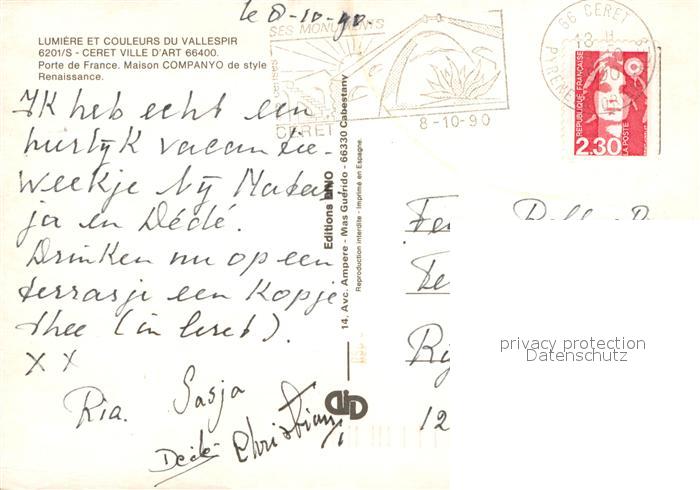 le 8-10-90.
LUMIÈRE ET COULEURS DU VALLESPIR
6201/S - CERET VILLE D'ART 66400.
Porte de France. Maison COMPANYO de style
Renaissance.
SES MONUMENTS
CERET
8-10-90
66 CERET
PYRENEES
RÉPUBLIQUE FRANÇAISE
LA POSTE
2,30
Ik heb echt een
hurlyk vacantie-
weekje bij
ja en Dédé.
Drinken nu op een
terrasje een kopje
thee (in Ceret).
x x
Ria. Sasja
Dédé Christian
Editions DINO
14, Avc. Ampere - Mas Guérido - 66330 Cabestany
Reproduction interdite - Imprimé en Espagne
Fe
Ri
12
privacy protection
Datenschutz